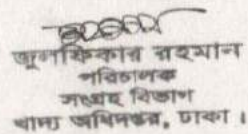 জুলফিকার রহমান
পরিচালক
সংগ্রহ বিভাগ
খাদ্য অধিদপ্তর, ঢাকা ।